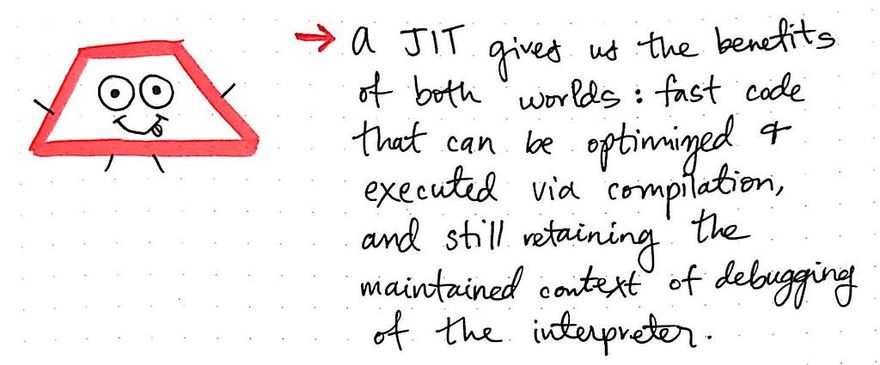 → a JIT gives us the benefits
of both worlds: fast code
that can be optimized &
executed via compilation,
and still retaining the
maintained context of debugging
of the interpreter.